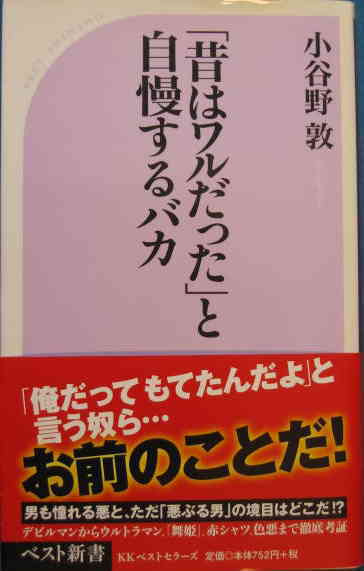 小谷野 敦
「昔はワルだった」と
自慢するバカ
「俺だってもてたんだよ」と
言う奴ら…
お前のことだ!
男も憧れる悪と、ただ「悪ぶる男」の境目はどこだ!?
デビルマンからウルトラマン、「舞姫」、赤シャツ、色悪まで徹底考証
ベスト新書 KKベストセラーズ 定価◎本体752円+税